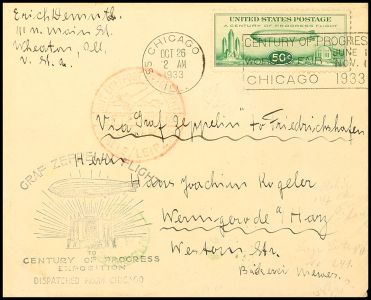 Erich Demuth
111 n. Main St.
Wheaton, Ill.
U. S. a.
CHICAGO
OCT 26
2 AM
1933
ILL.
UNITED STATES POSTAGE
A CENTURY OF PROGRESS FLIGHT
50¢
CENTURY OF PROGRESS
JUNE 1
NOV. 1
CHICAGO 1933
Via "Graf Zeppelin" to Friedrichshafen
Herrn
Hans Joachim Kogeler
Wernigerode a/Harz
Western Str.
Bäckerei
GRAF ZEPPELIN FLIGHT
TO
CENTURY OF PROGRESS
EXPOSITION
DISPATCHED FROM CHICAGO